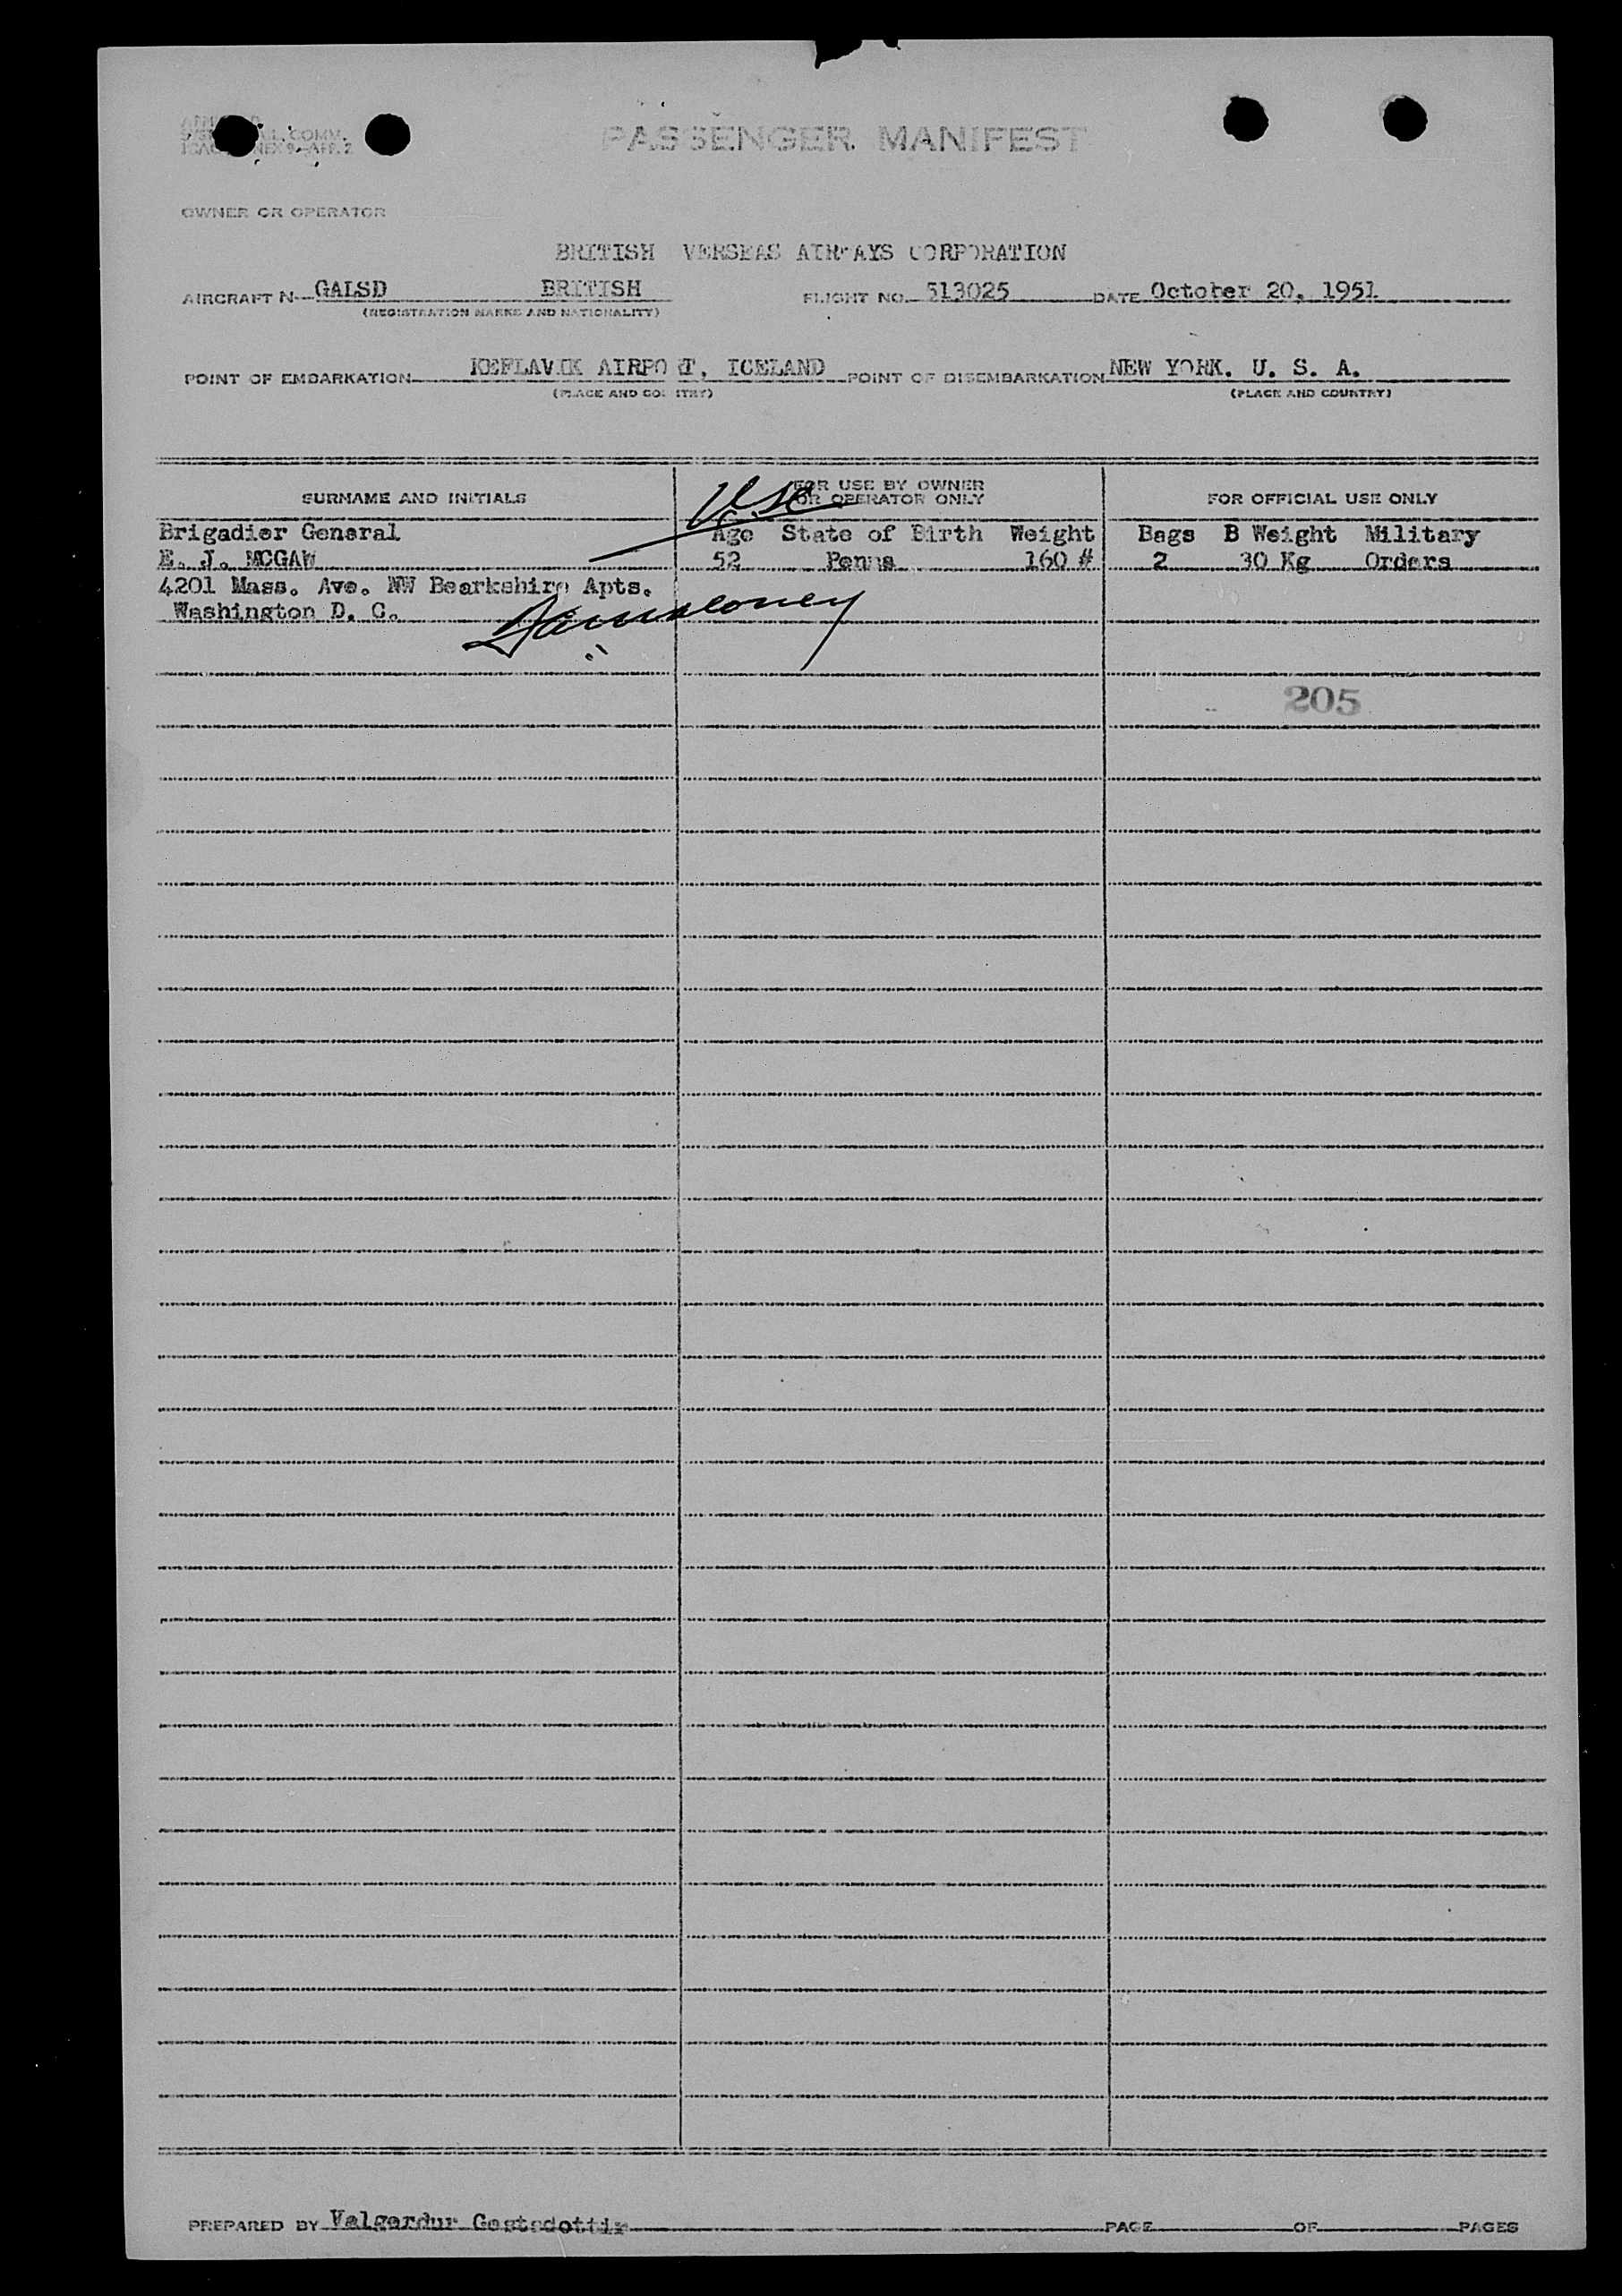 PASSENGER MANIFEST
OWNER OR OPERATOR
BRITISH VERSEAS AIRWAYS CORPORATION
AIRCRAFT N GALSD BRITISH FLIGHT NO. 513025 DATE October 20, 1951
(REGISTRATION MARKS AND NATIONALITY)
POINT OF EMBARKATION KEFLAVIK AIRPO T, ICELAND POINT OF DISEMBARKATION NEW YORK. U. S. A.
(PLACE AND COUNTRY) (PLACE AND COUNTRY)
SURNAME AND INITIALS FOR USE BY OWNER OR OPERATOR ONLY FOR OFFICIAL USE ONLY
USC
Brigadier General Age State of Birth Weight Bags B Weight Military
E. J. MCGAW 52 Penna 160 # 2 30 Kg Orders
4201 Mass. Ave. NW Bearkshire Apts.
Washington D. C.
205
PREPARED BY Valgerdur Gestsdottir PAGE OF PAGES